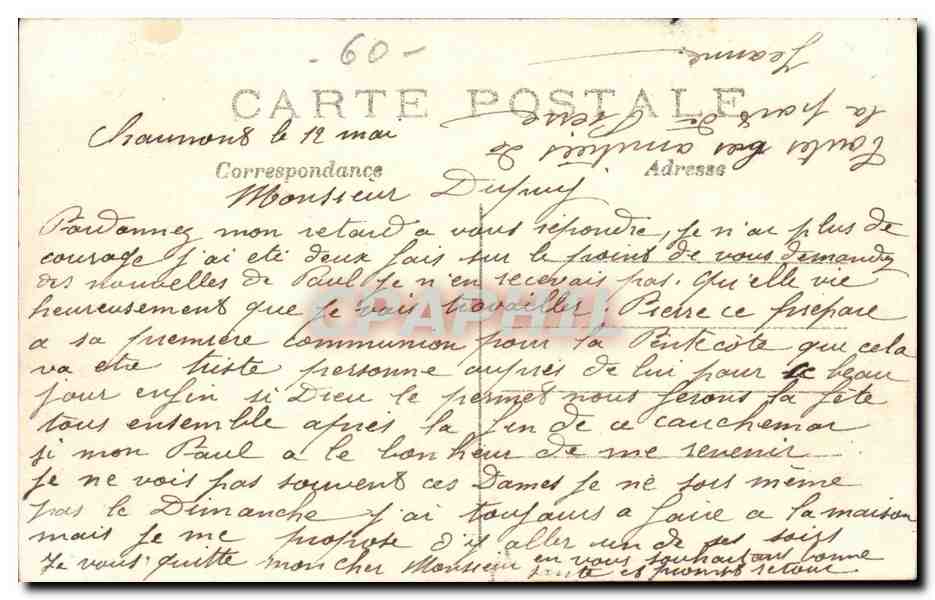 60
CARTE POSTALE
Chaumont le 12 mai
Correspondance
Adresse
Monsieur Dupuy
Pardonnez mon retard a vous répondre, je n'ai plus de
courage j'ai eté deux fois sur le point de vous demander
des nouvelles de Paul je n'en recevais pas. Qu'elle vie
heureusement que je vais travailler. Pierre ce prépare
a sa première communion pour la Pentecôte que cela
va etre triste personne auprès de lui pour ce beau
jour enfin si Dieu le permet nous ferons la fête
tous ensemble après la fin de ce cauchemar
si mon Paul a le bonheur de me revenir
Je ne vois pas souvent ces Dames je ne sors même
pas le Dimanche j'ai toujours a faire a la maison
mais je me propose d'y aller un de ces soirs
Je vous quitte mon cher Monsieur en vous souhaitant bonne
santé et prompt retour
Toutes les amitiés de
la part de Pierre
Jeanne
CPAPHIL